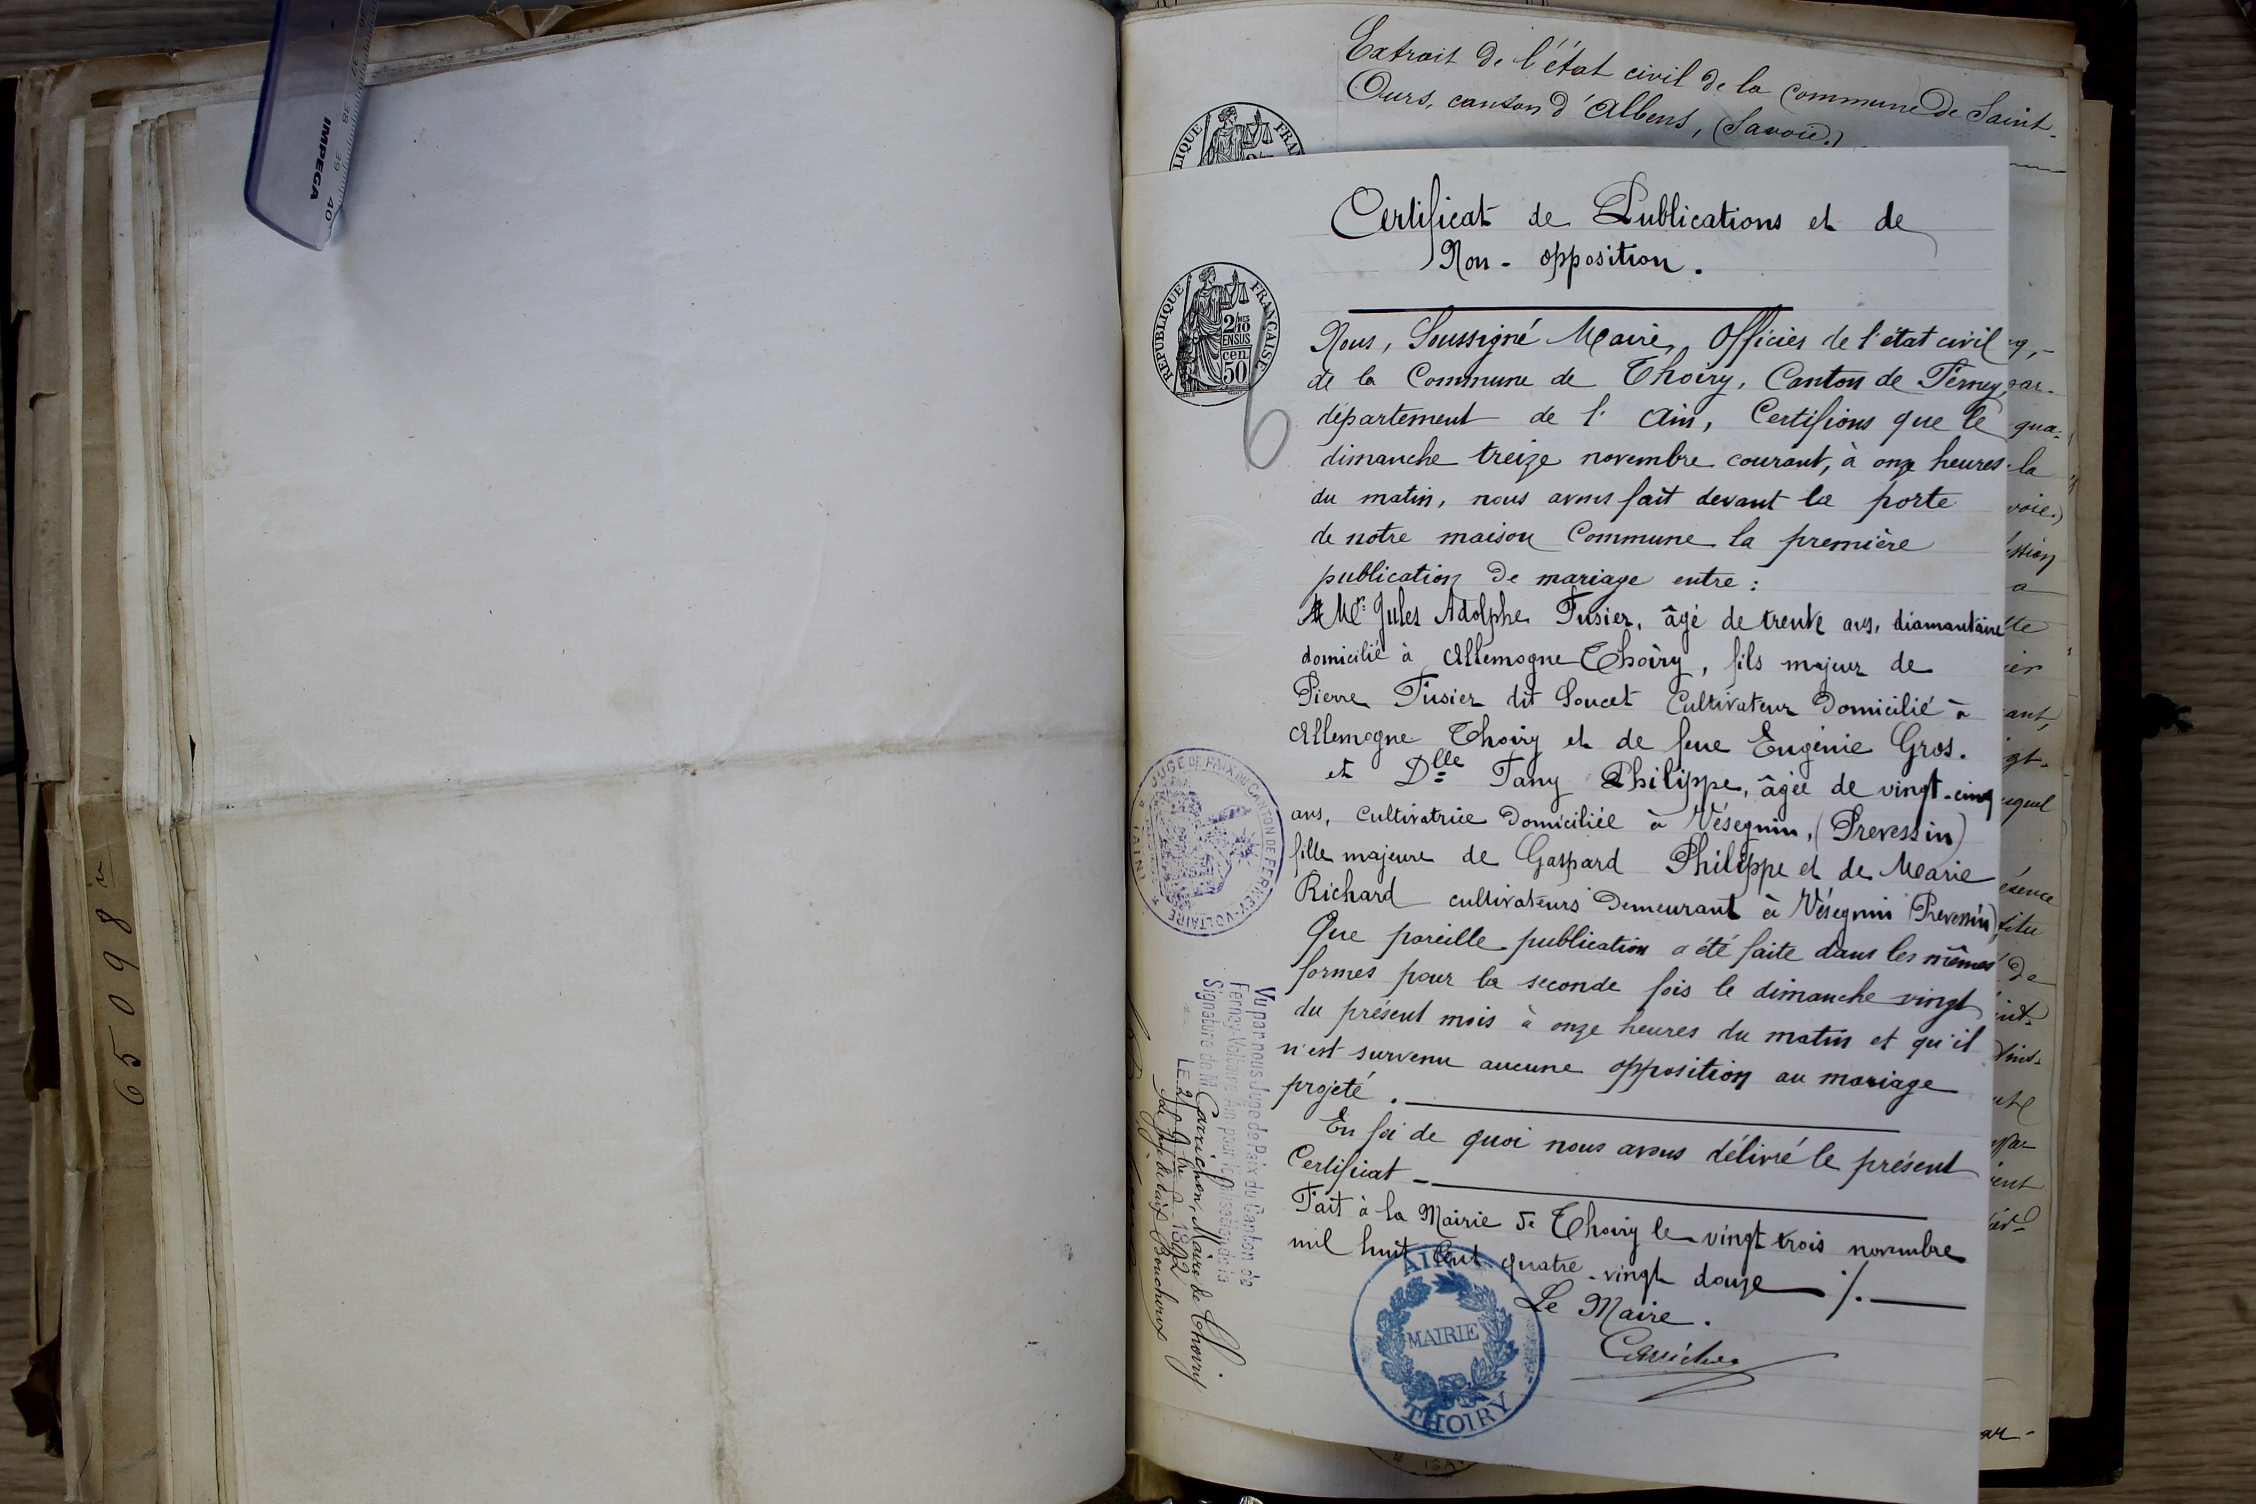 Extrait de l'état civil de la Commune de Saint-
Ours, canton d'Albens, (Savoie.)
Certificat de Publications et de
Non - opposition.
RÉPUBLIQUE FRANÇAISE
2/10
EN SUS
cen
50
Nous, Soussigné Maire, Officier de l'état civil
de la Commune de Thoiry, Canton de Ferney,
département de l'Ain, Certifions que le
dimanche treize novembre courant, à onze heures
du matin, nous avons fait devant la porte
de notre maison Commune la première
publication de mariage entre :
Mr. Jules Adolphe Fusier, âgé de trente ans, diamantaire
domicilié à Allemogne Thoiry, fils majeur de
Pierre Fusier dit Soucet Cultivateur Domicilié à
Allemogne Thoiry et de feue Eugénie Gros.
et Dlle Fany Philippe, âgée de vingt-cinq
ans, cultivatrice Domiciliée à Vésegnin, (Prevessin)
fille majeure de Gaspard Philippe et de Marie
Richard cultivateurs Demeurant à Vésegnin (Prevessin)
Que pareille publication a été faite dans les mêmes
formes pour la seconde fois le dimanche vingt
du présent mois à onze heures du matin et qu'il
n'est survenu aucune opposition au mariage
projeté.
En foi de quoi nous avons délivré le présent
Certificat
Fait à la Mairie de Thoiry le vingt trois novembre
mil huit cent quatre-vingt douze ./.
Le Maire.
MAIRIE
THOIRY
JUGE DE PAIX DU CANTON DE FERNEY-VOLTAIRE
(AIN)
Vu par nous Juge de Paix du Canton de
Ferney-Voltaire Ain pour légalisation de la
Signature de M. Carrichon, Maire de Thoiry
1892
65098
IMPEGA
37 38 39 40